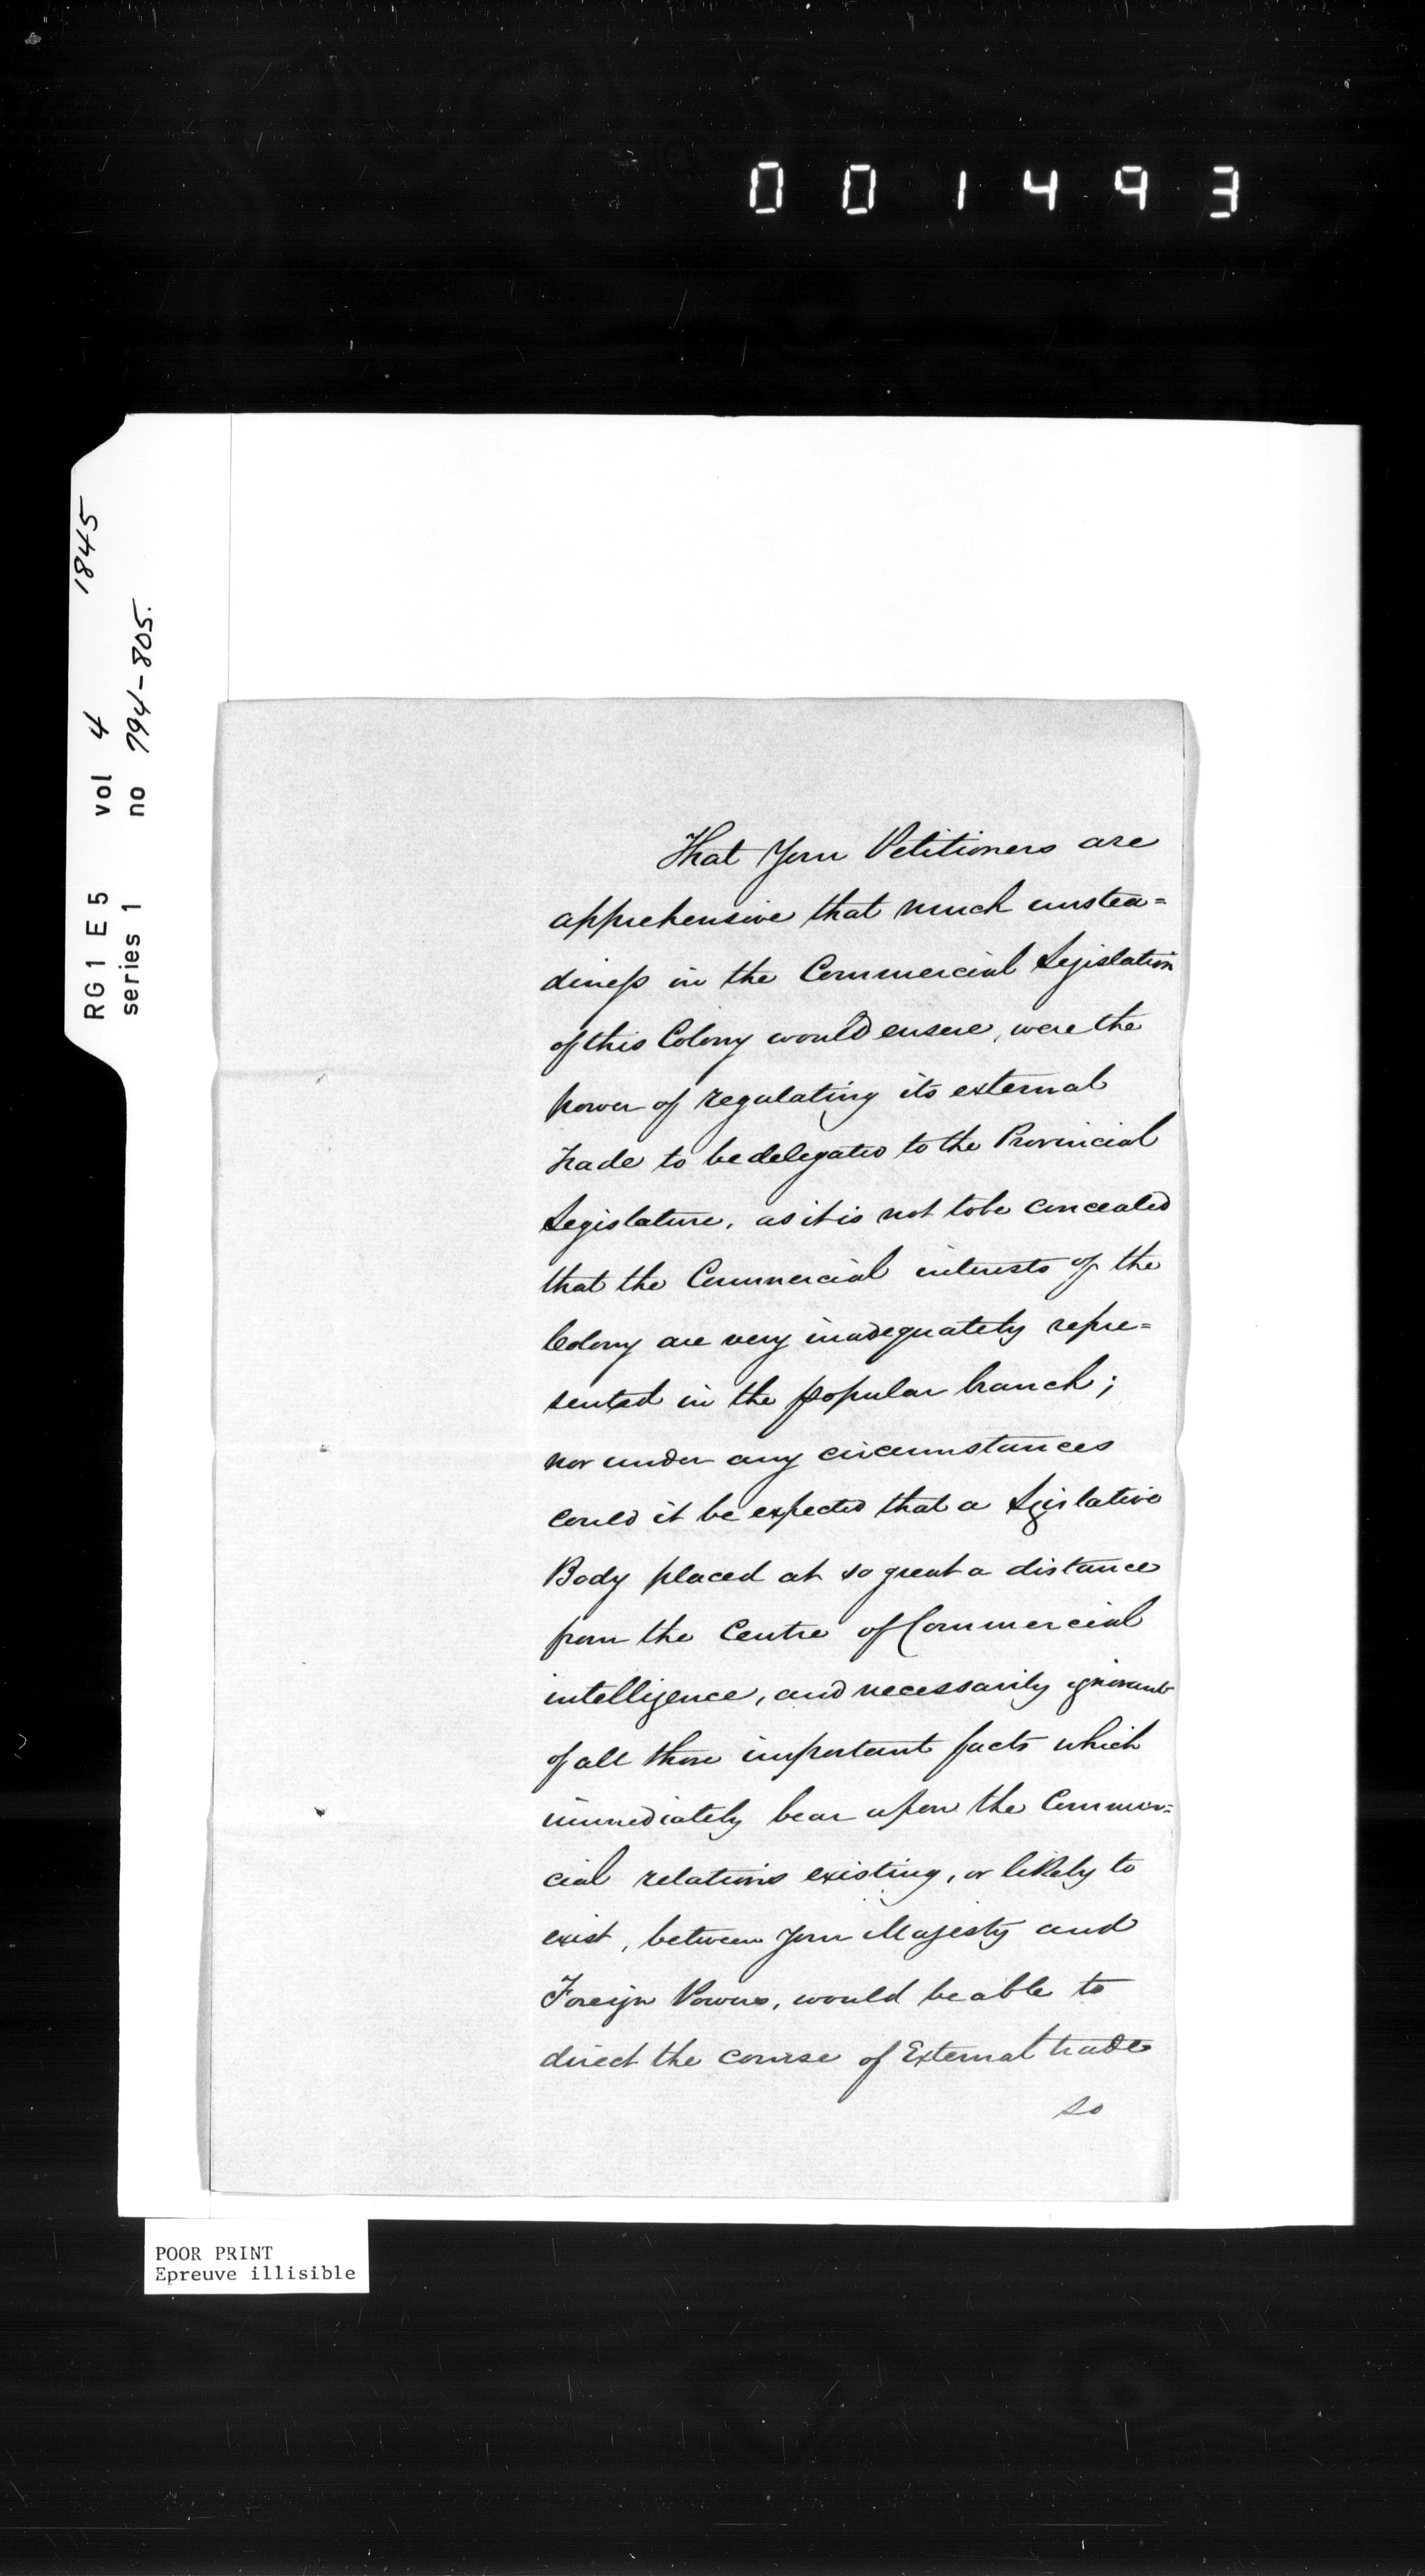 001493
1845
RG1 E5 vol 4
series 1 no 794-805.
That Your Petitioners are
apprehensive that much unstea=
diness in the Commercial Legislation
of this Colony would ensue, were the
power of regulating its external
trade to be delegated to the Provincial
Legislature, as it is not to be concealed
that the Commercial interests of the
Colony are very inadequately repre=
sented in the popular branch;
nor under any circumstances
could it be expected that a Legislative
Body placed at so great a distance
from the Centre of Commercial
intelligence, and necessarily ignorant
of all those important facts which
immediately bear upon the Commer=
cial relations existing, or likely to
exist, between Your Majesty and
Foreign Powers, would be able to
direct the course of External trade
so
POOR PRINT
Epreuve illisible